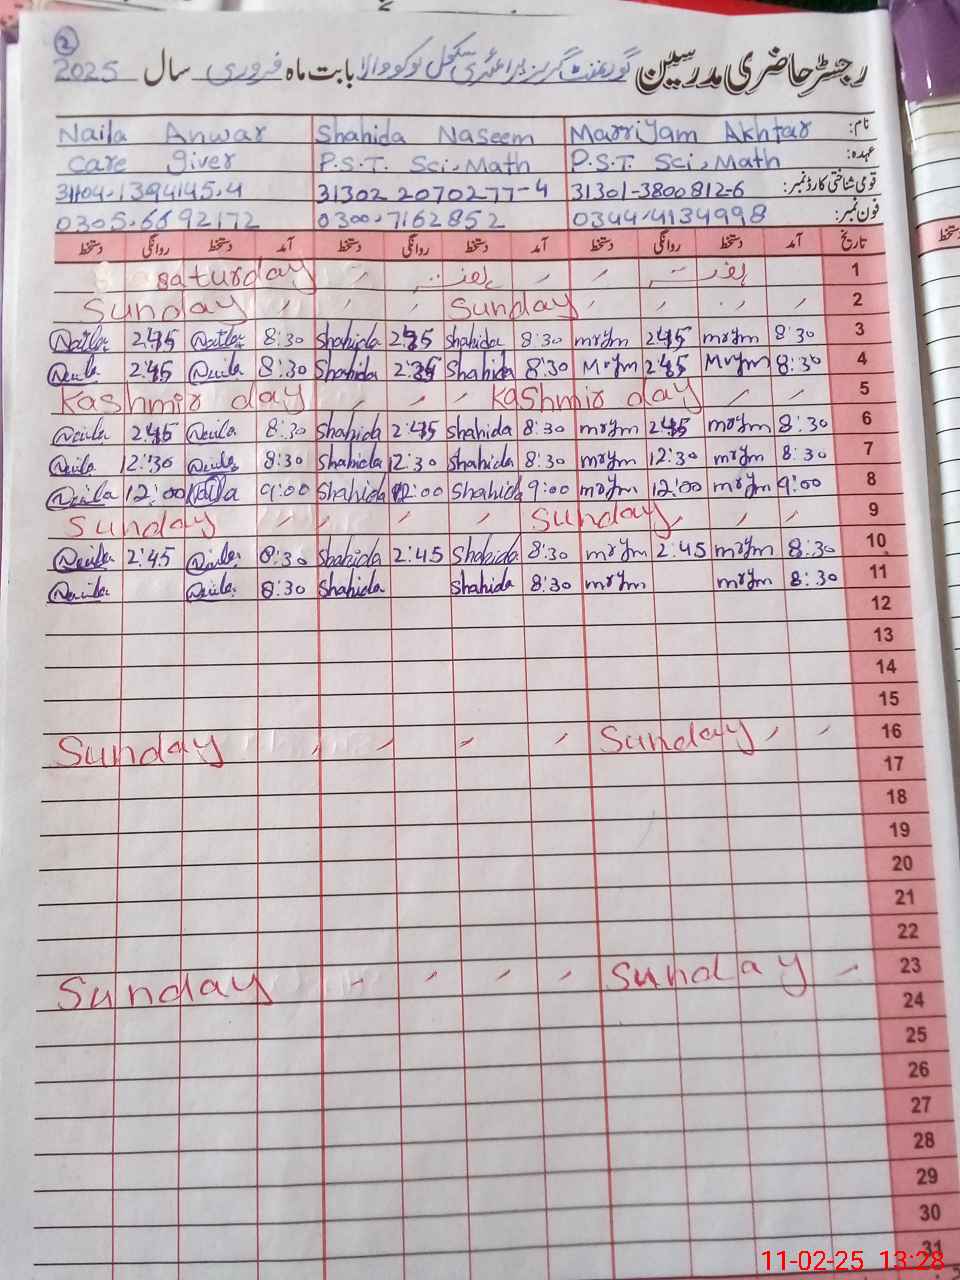 ②
رجسٹر حاضری مدرسین گورنمنٹ گرلز پرائمری سکول بابت ماہ فروری سال 2025
نام: Marriyam Akhtar Shahida Naseem Naila Anwar
عہدہ: P.S.T. Sci, Math P.S.T. Sci, Math Care giver
قومی شناختی کارڈ نمبر: 31301-3800812-6 31302 2070277-4
فون نمبر: 0344.4134998 0300.7162852 0305.6692172
تاریخ آمد دستخط روانگی دستخط آمد دستخط روانگی دستخط آمد دستخط روانگی دستخط
دستخط
1 ہفتہ ہفتہ saturday
2 Sunday Sunday
3 8:30 mrym 2:45 mrym 8:30 Shahida 2:45 Shahida 8:30 Naila 2:45 Naila
4 8:30 Mrym 2:45 Mrym 8:30 Shahida Shahida 8:30 Naila 2:45 Naila
5 Kashmir day Kashmir day
6 8:30 mrym 2:45 mrym 8:30 Shahida 2:45 Shahida 8:30 Naila 2:45 Naila
7 8:30 mrym 12:30 mrym 8:30 Shahida 12:30 Shahida 8:30 Naila 12:30 Naila
8 9:00 mrym 12:00 mrym 9:00 Shahida 12:00 Shahida 9:00 Naila 12:00 Naila
9 Sunday Sunday
10 8:30 mrym 2:45 mrym 8:30 Shahida 2:45 Shahida 8:30 Naila 2:45 Naila
11 8:30 mrym mrym 8:30 Shahida Shahida 8:30 Naila Naila
12
13
14
15
16 Sunday Sunday
17
18
19
20
21
22
23 Sunday Sunday
24
25
26
27
28
29
30
31
11-02-25 13:28